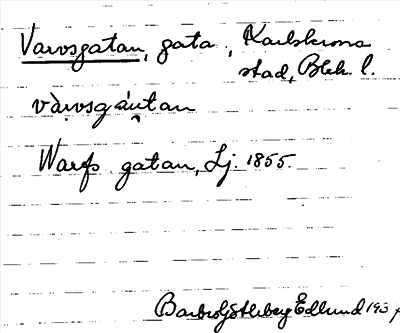 Varvsgatan, gata, Karlskrona
stad, Blek. l.
vàrvsgáutan
Warfs gatan, Lj. 1855.
Barbro Götlberg Edlund 193